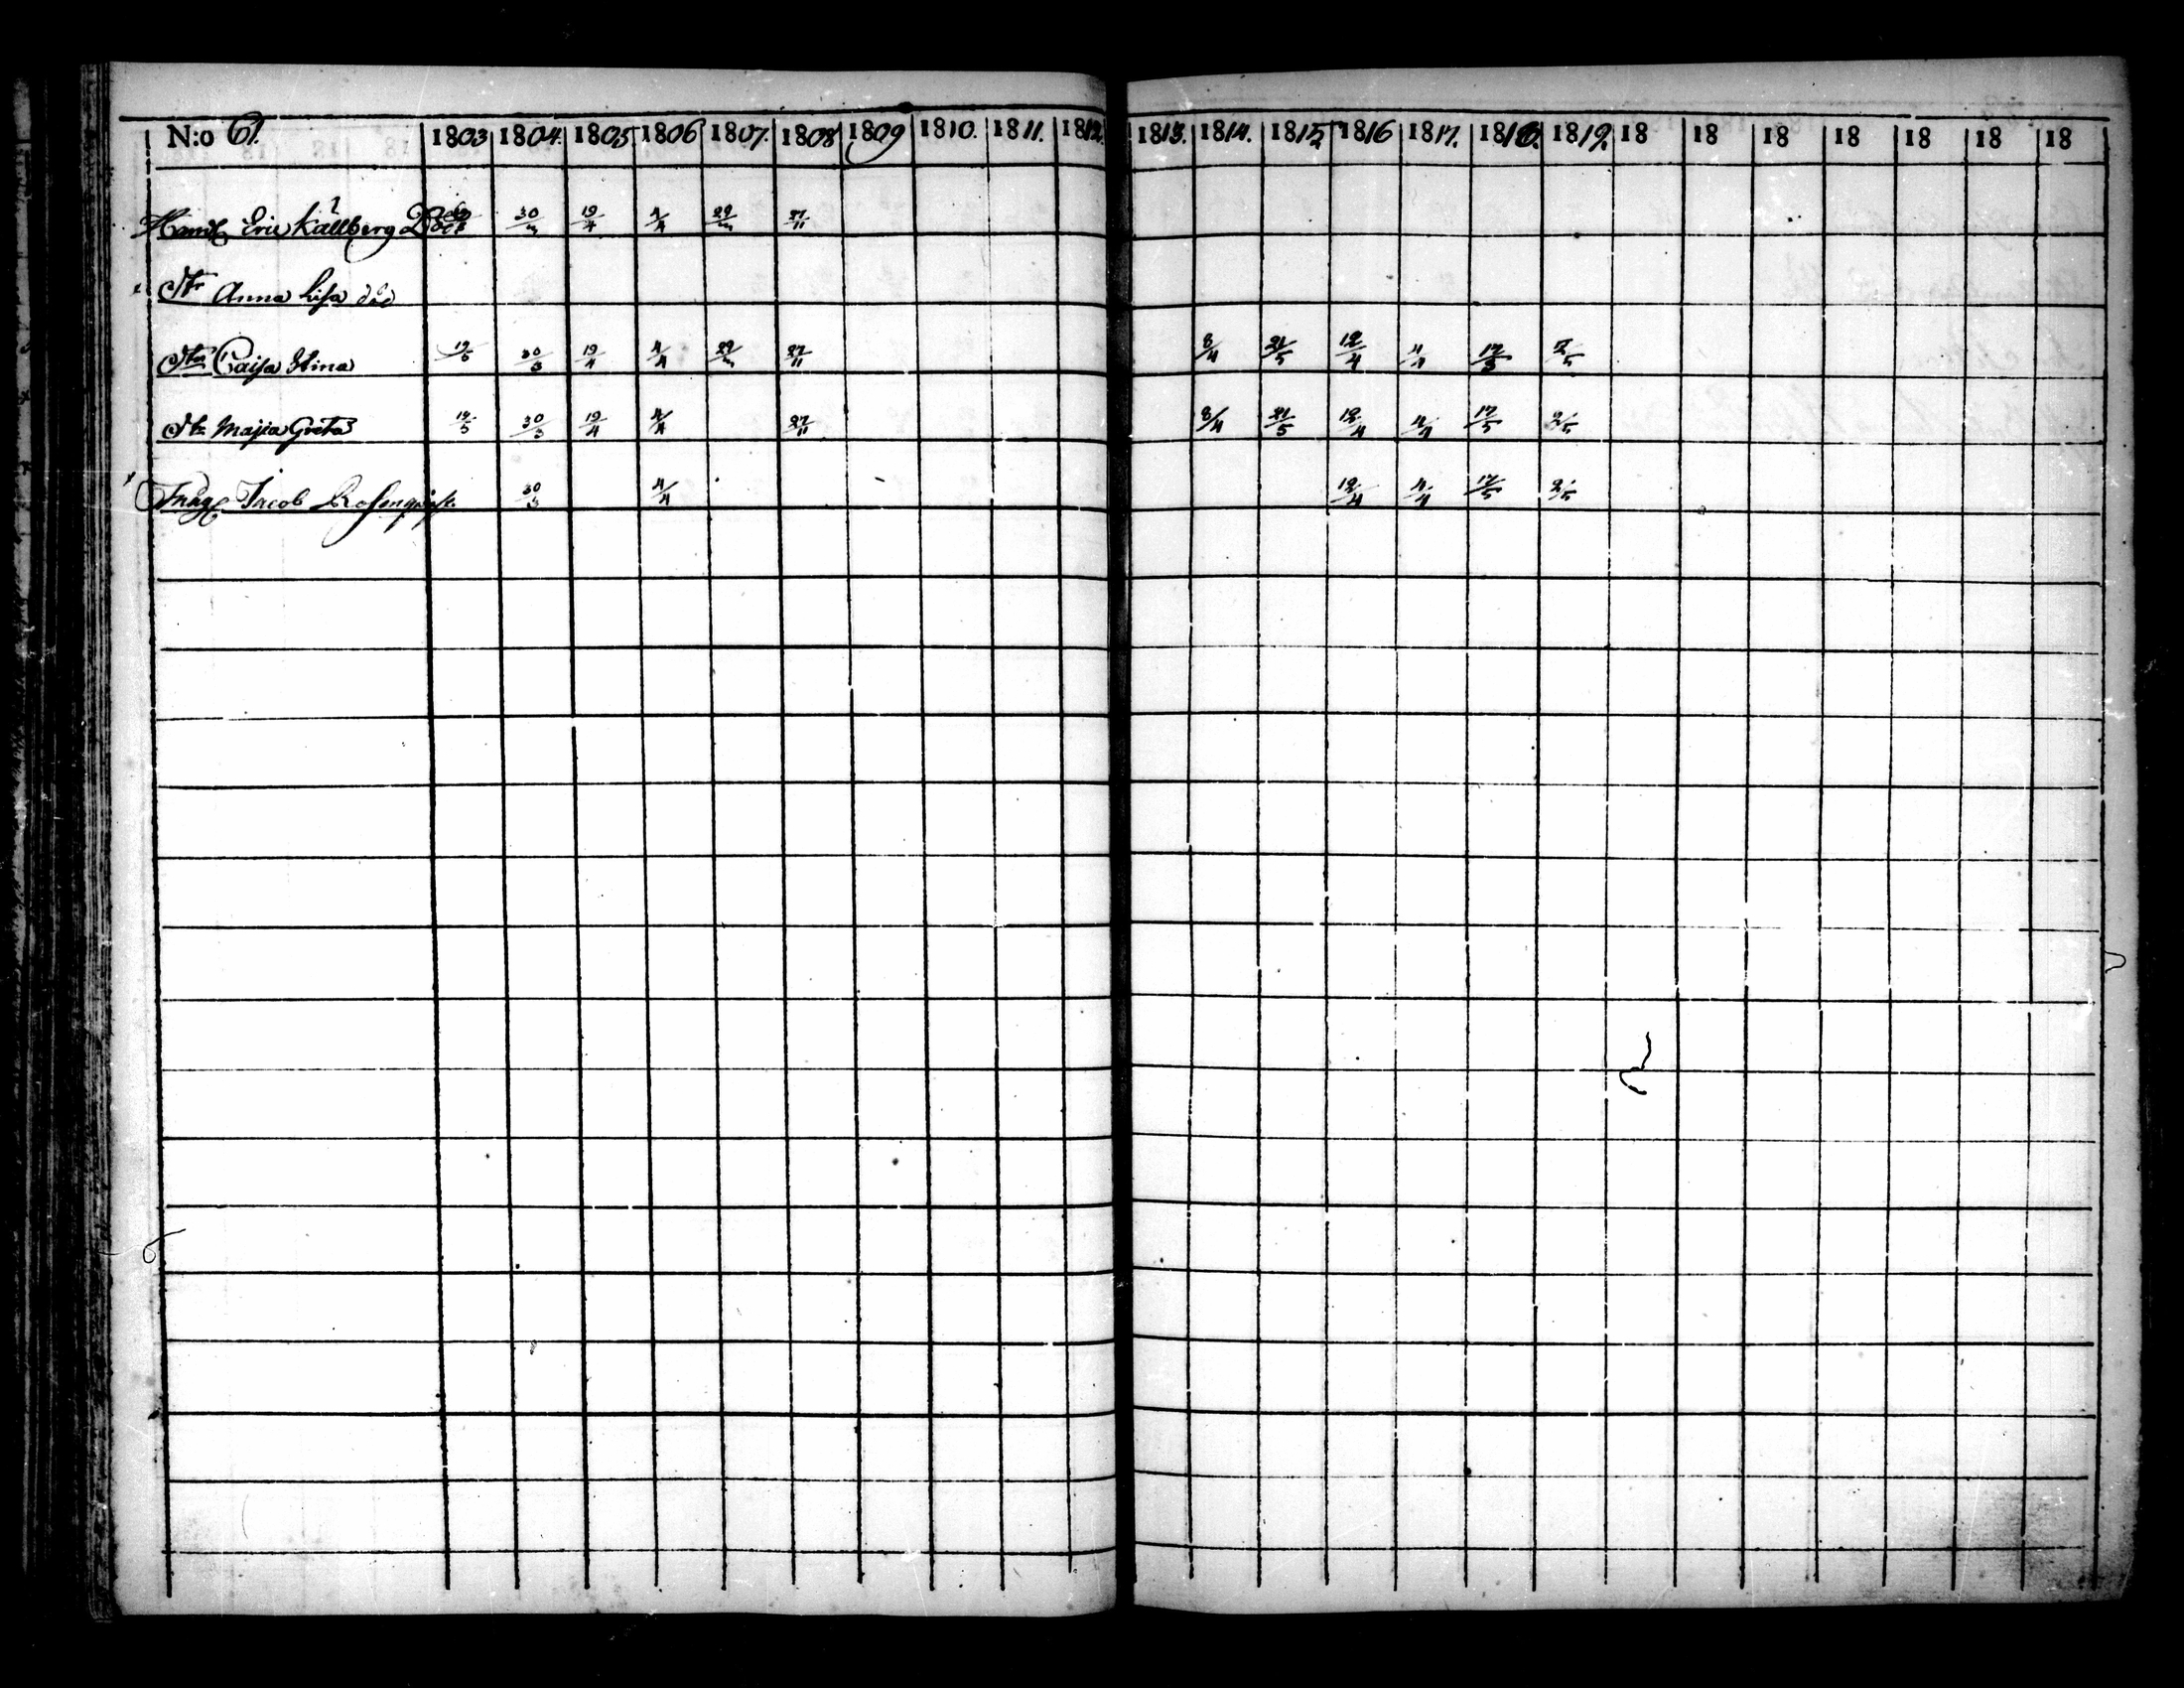 N:o 61. 1803 1804. 1805 1806 1807. 1808 1809 1810. 1811. 1812. 1813. 1814. 1815 1816 1817. 1818. 1819. 18 18 18 18 18 18 18
Eric Källberg 30/3 19/4 4/4 29/3 27/11
Anna Lisa död
Caisa Stina 19/5 30/3 19/4 4/4 29/3 27/11 8/4 21/5 12/4 4/4 17/5 2/5
Majia Greta 19/5 30/3 19/4 4/4 27/11 8/4 21/5 12/4 4/4 17/5 2/5
Jacob Rosenqvist 30/3 4/4 12/4 4/4 17/5 2/5